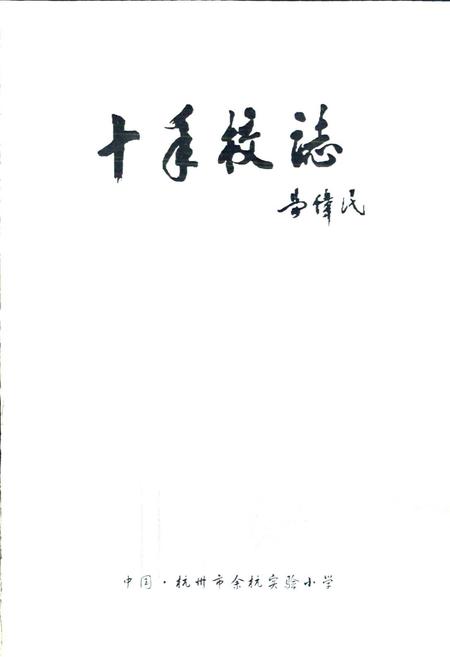 十年校誌
劳偉民
中国·杭州市余杭实验小学